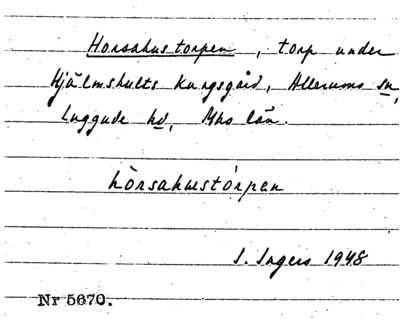 Horsahustorpen, torp under
Hjälmshults kungsgård, Allerums sn,
Luggude hd, Mhs län.
hòrsahustórpen
I. Ingers 1948
Nr 5670.